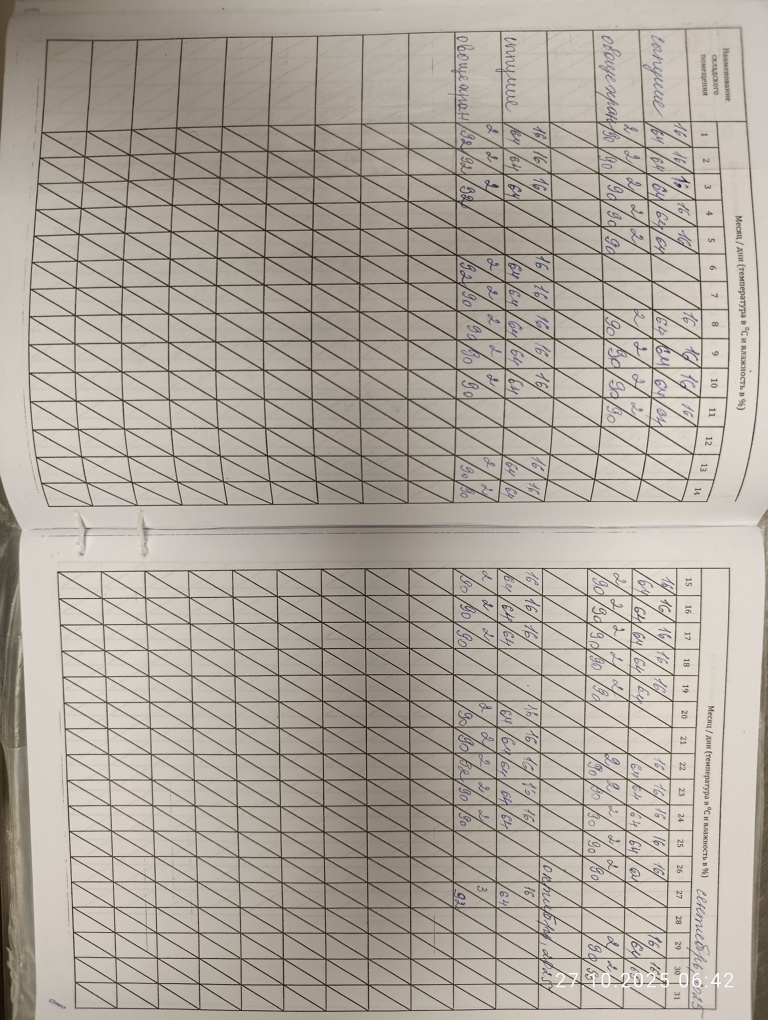 Наименование складского помещения
Месяц / дни (температура в °С и влажность в %)
1 2 3 4 5 6 7 8 9 10 11 12 13 14
16 16 16 16 16 16 16 16 16
сыпучие 64 64 64 64 64 64 64 64 64
2 2 2 2 2 2 2 2 2
овощехран 90 90 90 90 90 90 90 90 90
16 16 16 16 16 16 16 16 16 16
сыпучие 64 64 64 64 64 64 64 64 64 64
2 2 2 2 2 2 2 2 2 2
овощехран 92 92 92 92 90 90 90 90 90 90
сентябрь 2025
Месяц / дни (температура в °С и влажность в %)
15 16 17 18 19 20 21 22 23 24 25 26 27 28 29 30 31
16 16 16 16 16 16 16 16 16 16 16 16
64 64 64 64 64 64 64 64 64 64 64
2 2 2 2 2 2 2 2 2 2 2 2
90 90 90 90 90 90 90 90 90 90 90
октябрь 2025
16 16 16 16 16 16 16 16 16
64 64 64 64 64 64 64 64 64
2 2 2 2 2 2 2 2 3
90 90 90 90 90 92 90 90 92
27.10.2025 06:42